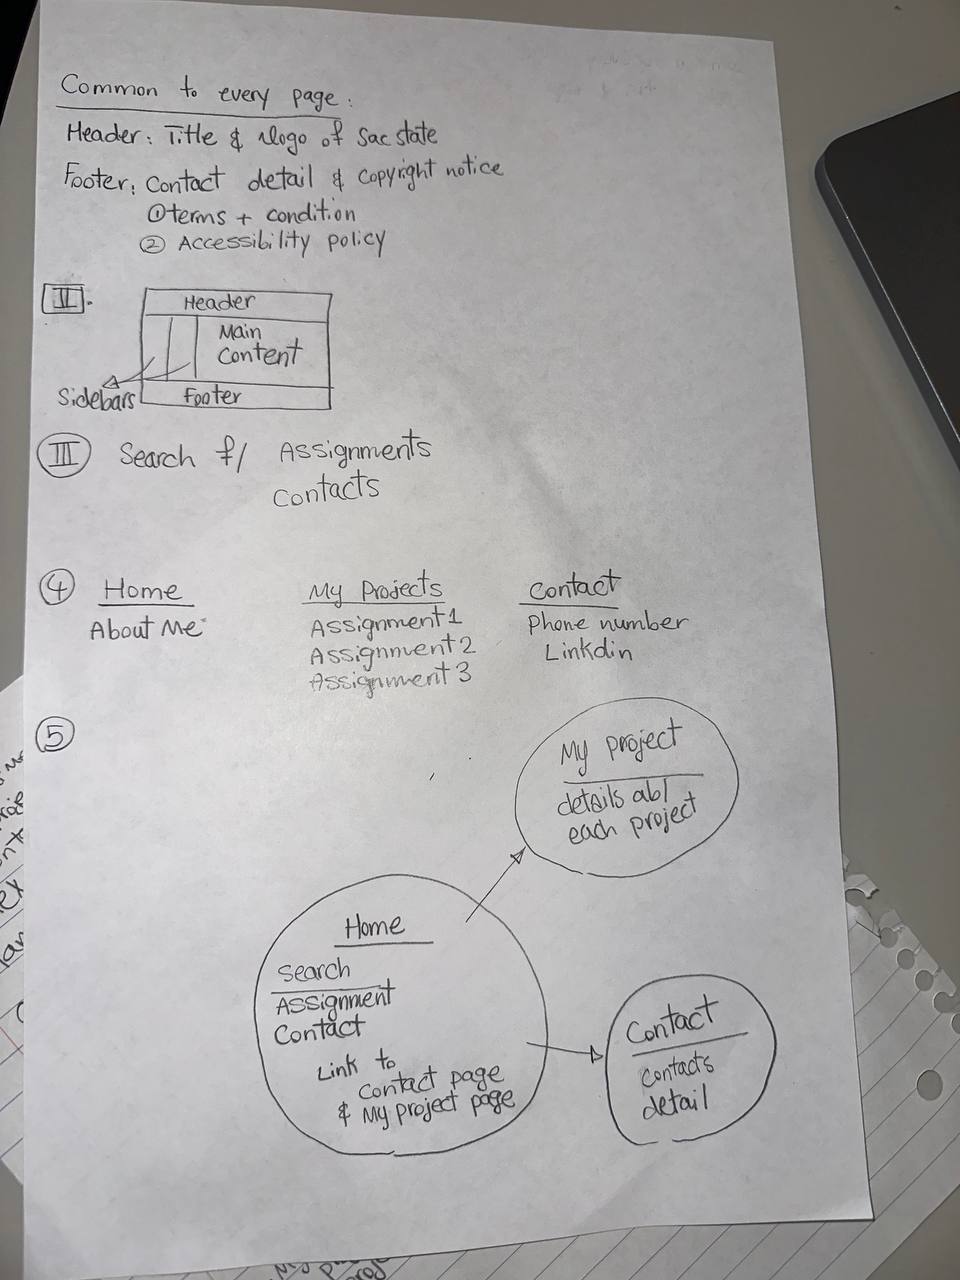 Common to every page:
Header: Title & logo of Sac state
Footer: Contact detail & copyright notice
① terms + condition
② Accessibility policy
II.
Header
Main
Content
Sidebars
Footer
III Search f/ Assignments
Contacts
④ Home
About Me
My Projects
Assignment 1
Assignment 2
Assignment 3
Contact
Phone number
Linkdin
⑤
My project
details abt
each project
Home
Search
Assignment
Contact
Link to
Contact page
& My project page
Contact
contacts
detail